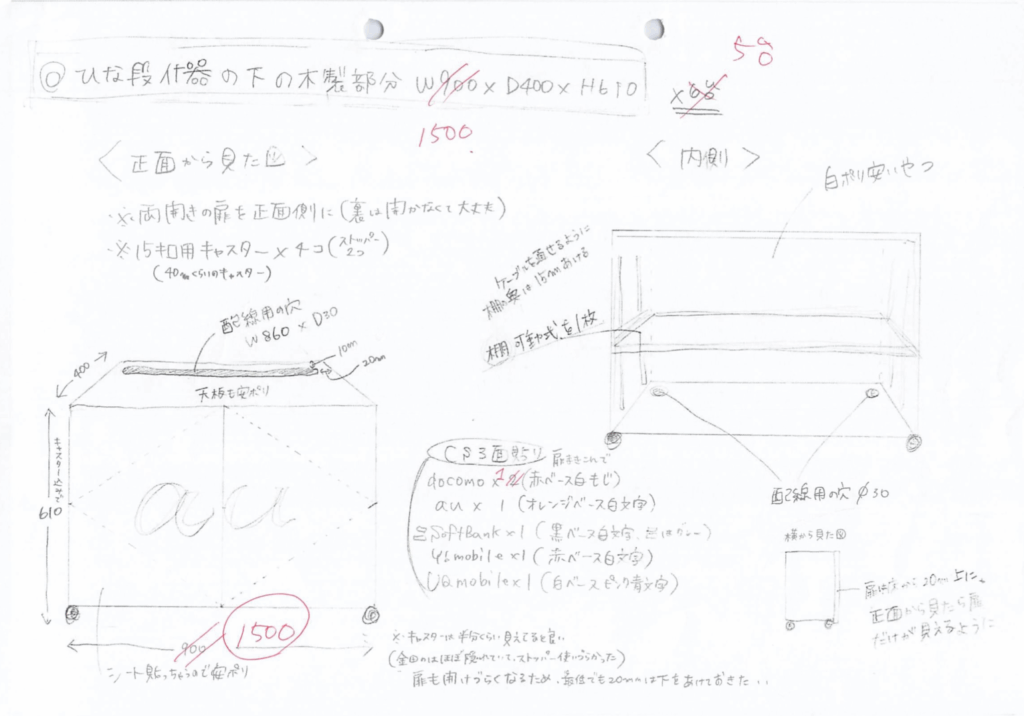 ◎ ひな段什器の下の木製部分 W900×D400×H610
1500
50
〈正面から見た図〉
※両開きの扉を正面側に(裏は開かなくて大丈夫)
※15キロ用キャスター×4コ(ストッパー2コ)
(40mmくらいのキャスター)
配線用の穴
W860×D30
10mm
20mm
400
天板も安ポリ
キャスター込みで
610
au
900
1500
シート貼っちゃうので安ポリ
〈内側〉
白ポリ安いやつ
ケーブルを通せるように
棚の奥は15mmあける
棚可動式を1枚
配線用の穴 φ30
CS3面貼り
扉もこれで
docomo×2(赤ベース白もじ)
au×1(オレンジベース白文字)
SoftBank×1(黒ベース白文字、
Y!mobile×1(赤ベース白文字)
UQmobile×1(白ベースピンク青文字)
横から見た図
扉は床から20mm上に。
正面から見たら扉
だけが見えるように
※キャスターは半分くらい見えてると良い
(全回のはほぼ隠れていて、ストッパー使いづらかった)
扉も開けづらくなるため、最低でも20mmは下をあけておきたい..